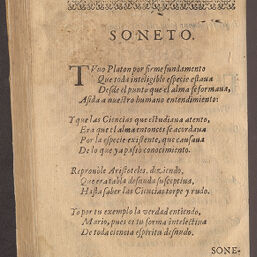 SONETO.
TVuo Platon por firme fundamento
Que toda inteligible especie estaua
Desde el punto que el alma se formaua,
Asida a nuestro humano entendimiento:
Y que las Ciencias que estudiaua atento,
Era que el alma entonces se acordaua
Por la especie existente, que causaua
De lo que ya passò conocimiento.
Reprouòle Aristoteles, diziendo,
Que era tabla desnuda susceptiua,
Hasta saber las Ciencias torpe y rudo.
Yo por tu exemplo la verdad entiendo,
Mario, pues es tu forma intelectiua
De toda ciencia espiritu desnudo.
SONE-